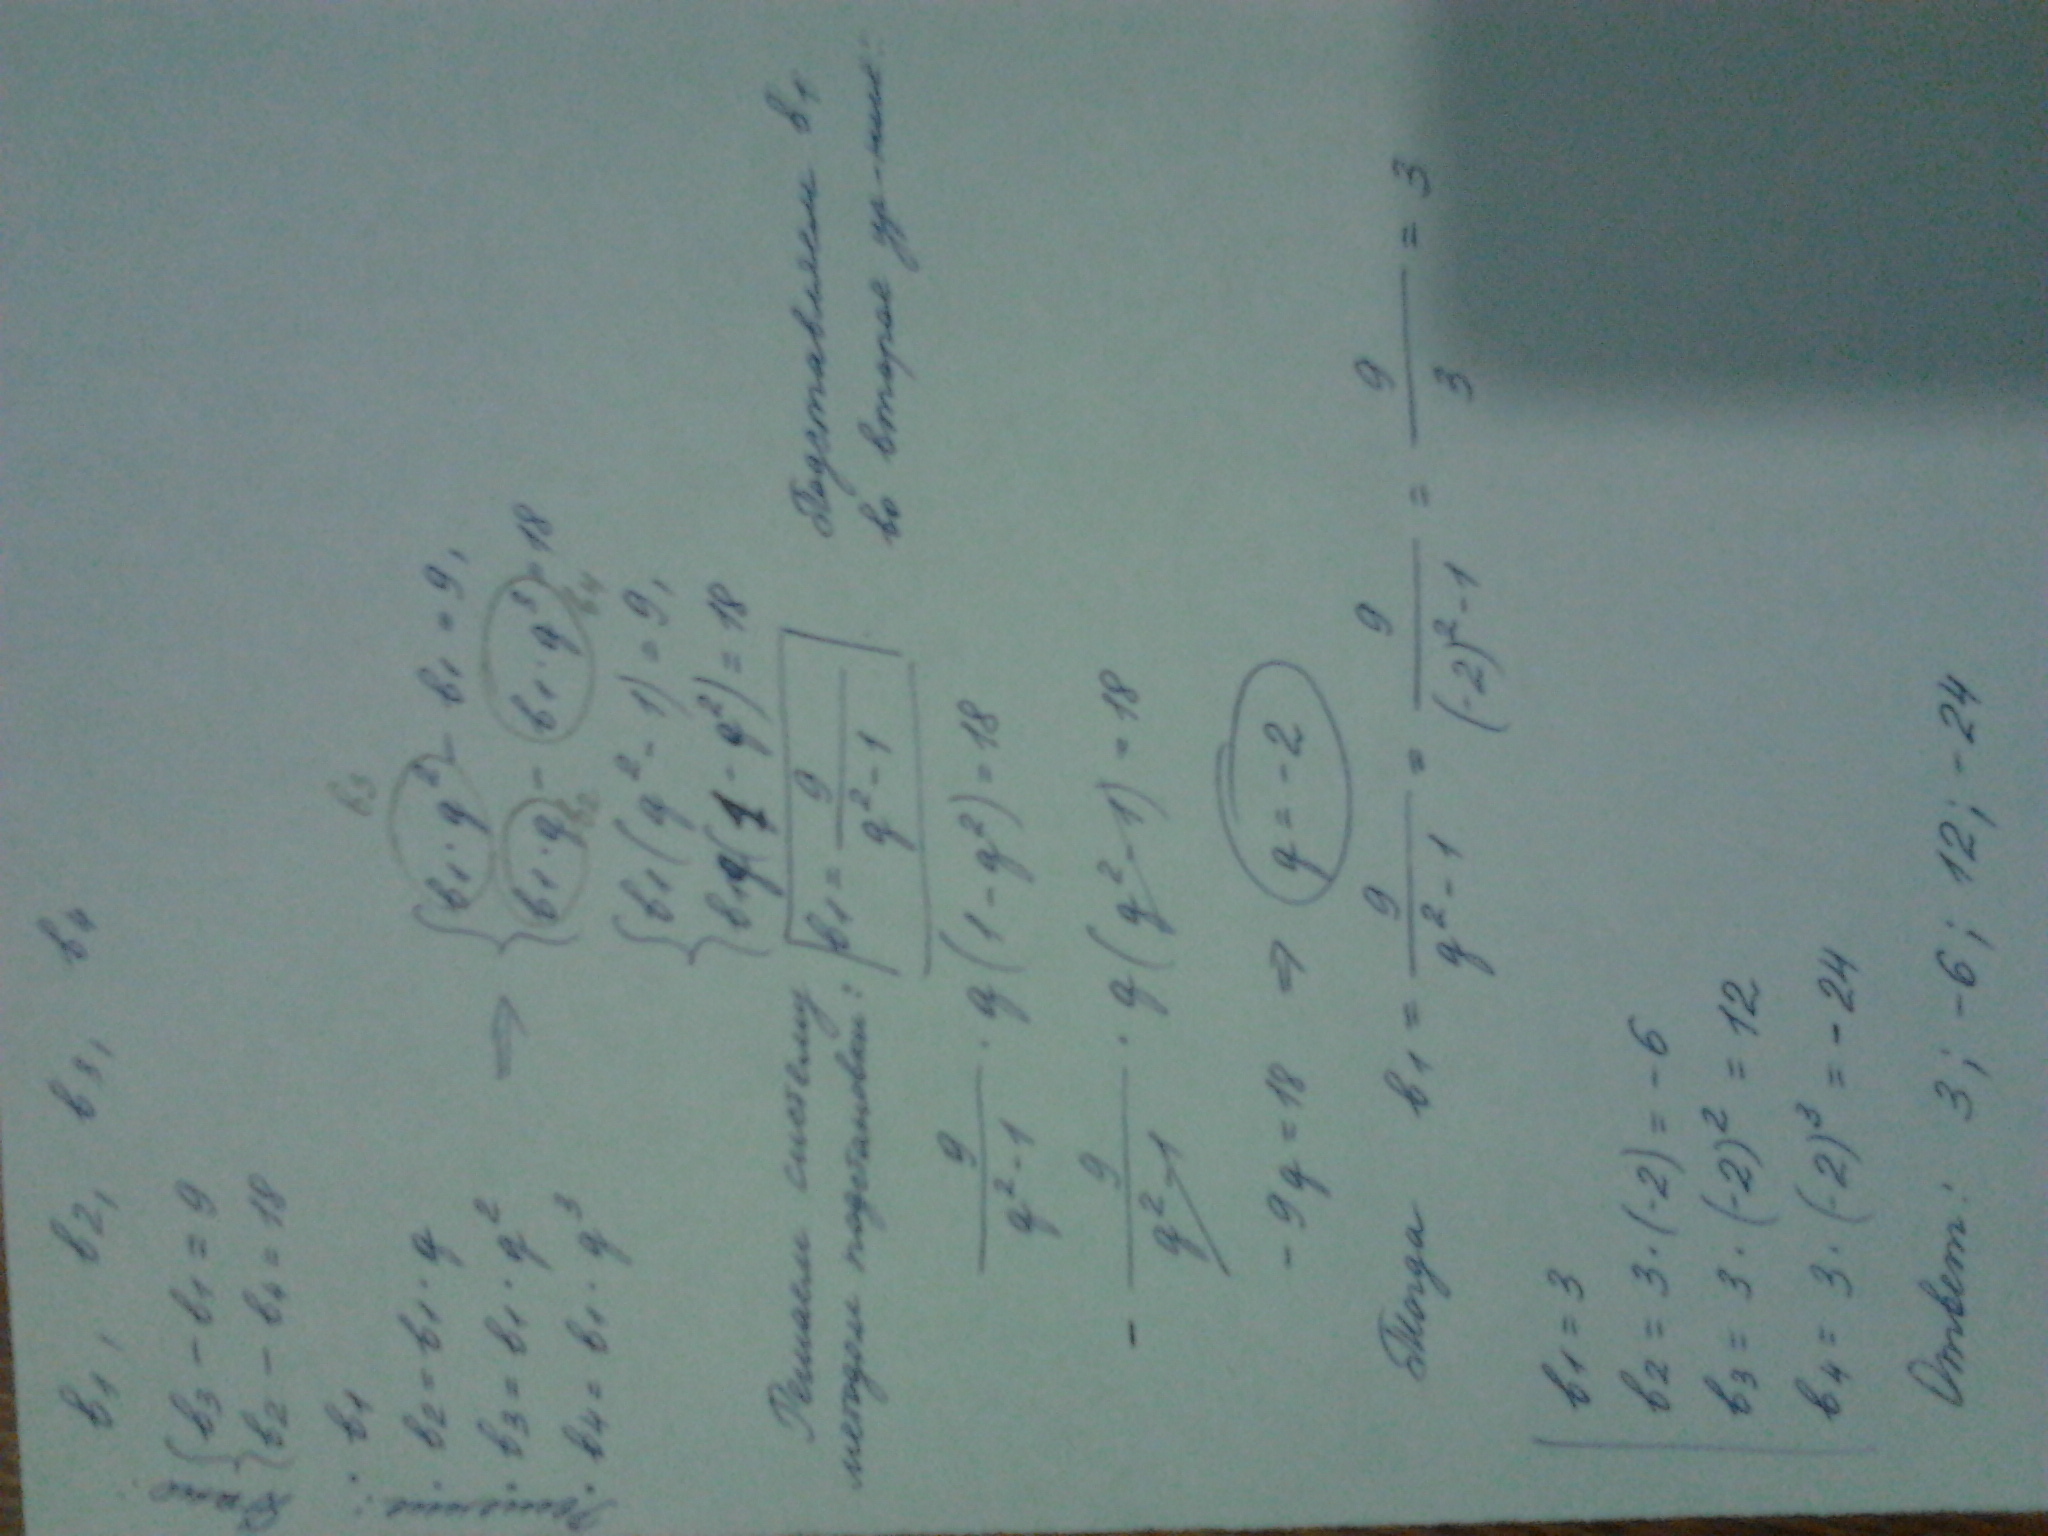 b1, b2, b3, b4
Дано: { b3 - b1 = 9
b2 - b4 = 18
Решение: b1
b2 = b1 · q
b3 = b1 · q²
b4 = b1 · q³
⇒
b3
{ b1 · q² - b1 = 9,
b1 · q - b1 · q³ = 18
b2 b4
{ b1(q² - 1) = 9,
b1q(1 - q²) = 18
Решаем систему
методом подстановки:
b1 = 9/(q² - 1)
Подставляем b1
во второе ур-ние:
9/(q² - 1) · q(1 - q²) = 18
- 9/(q² - 1) · q(q² - 1) = 18
-9q = 18 ⇒ q = -2
Тогда b1 = 9/(q² - 1) = 9/((-2)² - 1) = 9/3 = 3
b1 = 3
b2 = 3 · (-2) = -6
b3 = 3 · (-2)² = 12
b4 = 3 · (-2)³ = -24
Ответ: 3; -6; 12; -24